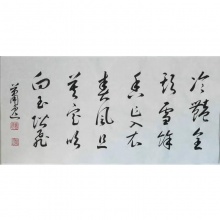 冷艷全
欺雪餘
香乍入衣
春風且
莫定吹
向玉階飛